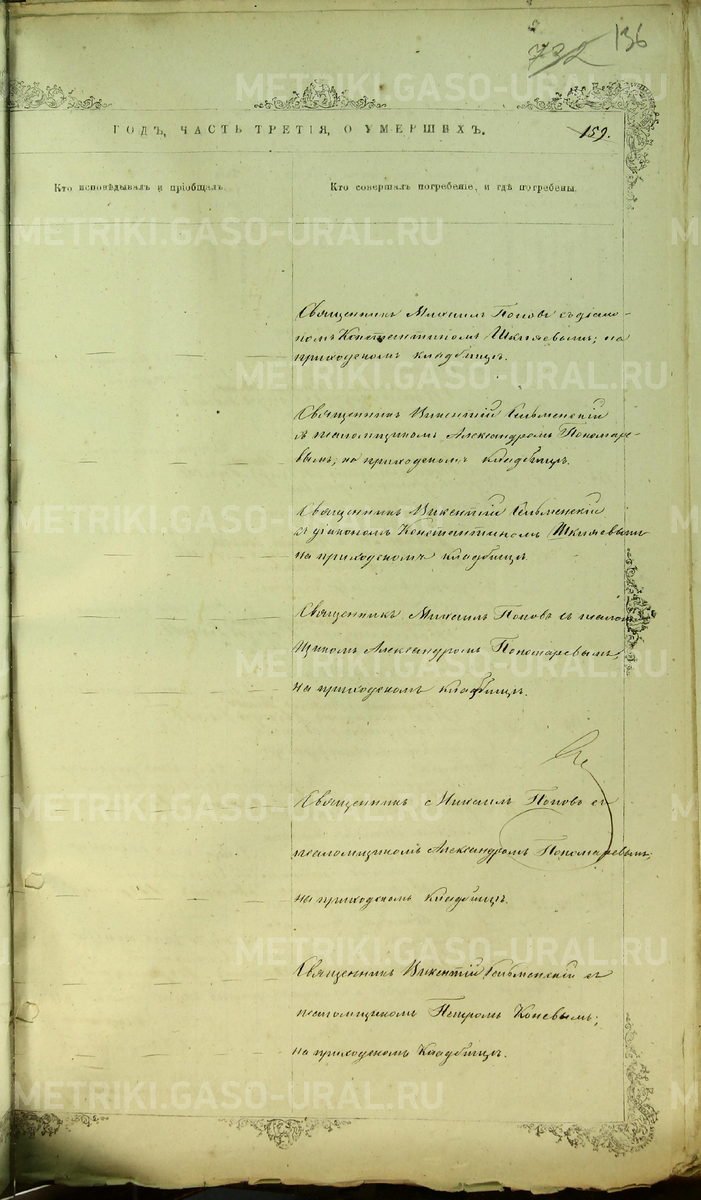 136
732
ГОДЪ, ЧАСТЬ ТРЕТІЯ, О УМЕРШИХЪ.
159.
Кто исповѣдывалъ и пріобщалъ.
Кто совершалъ погребеніе, и гдѣ погребены.
Священникъ Михаилъ Поповъ съ діако-
номъ Константиномъ Шкляевымъ; на
приходскомъ кладбищѣ.
Священникъ Викентій Сельменскій
съ псаломщикомъ Александромъ Пономаре-
вымъ; на приходскомъ кладбищѣ.
Священникъ Викентій Сельменскій
съ діакономъ Константиномъ Шкляевымъ
на приходскомъ кладбищѣ.
Священникъ Михаилъ Поповъ съ псалом-
щикомъ Александромъ Пономаревымъ;
на приходскомъ кладбищѣ.
Священникъ Михаилъ Поповъ съ
псаломщикомъ Александромъ Пономаревымъ;
на приходскомъ кладбищѣ.
Священникъ Викентій Сельменскій съ
псаломщикомъ Петромъ Коневымъ;
на приходскомъ кладбищѣ.
METRIKI.GASO-URAL.RU